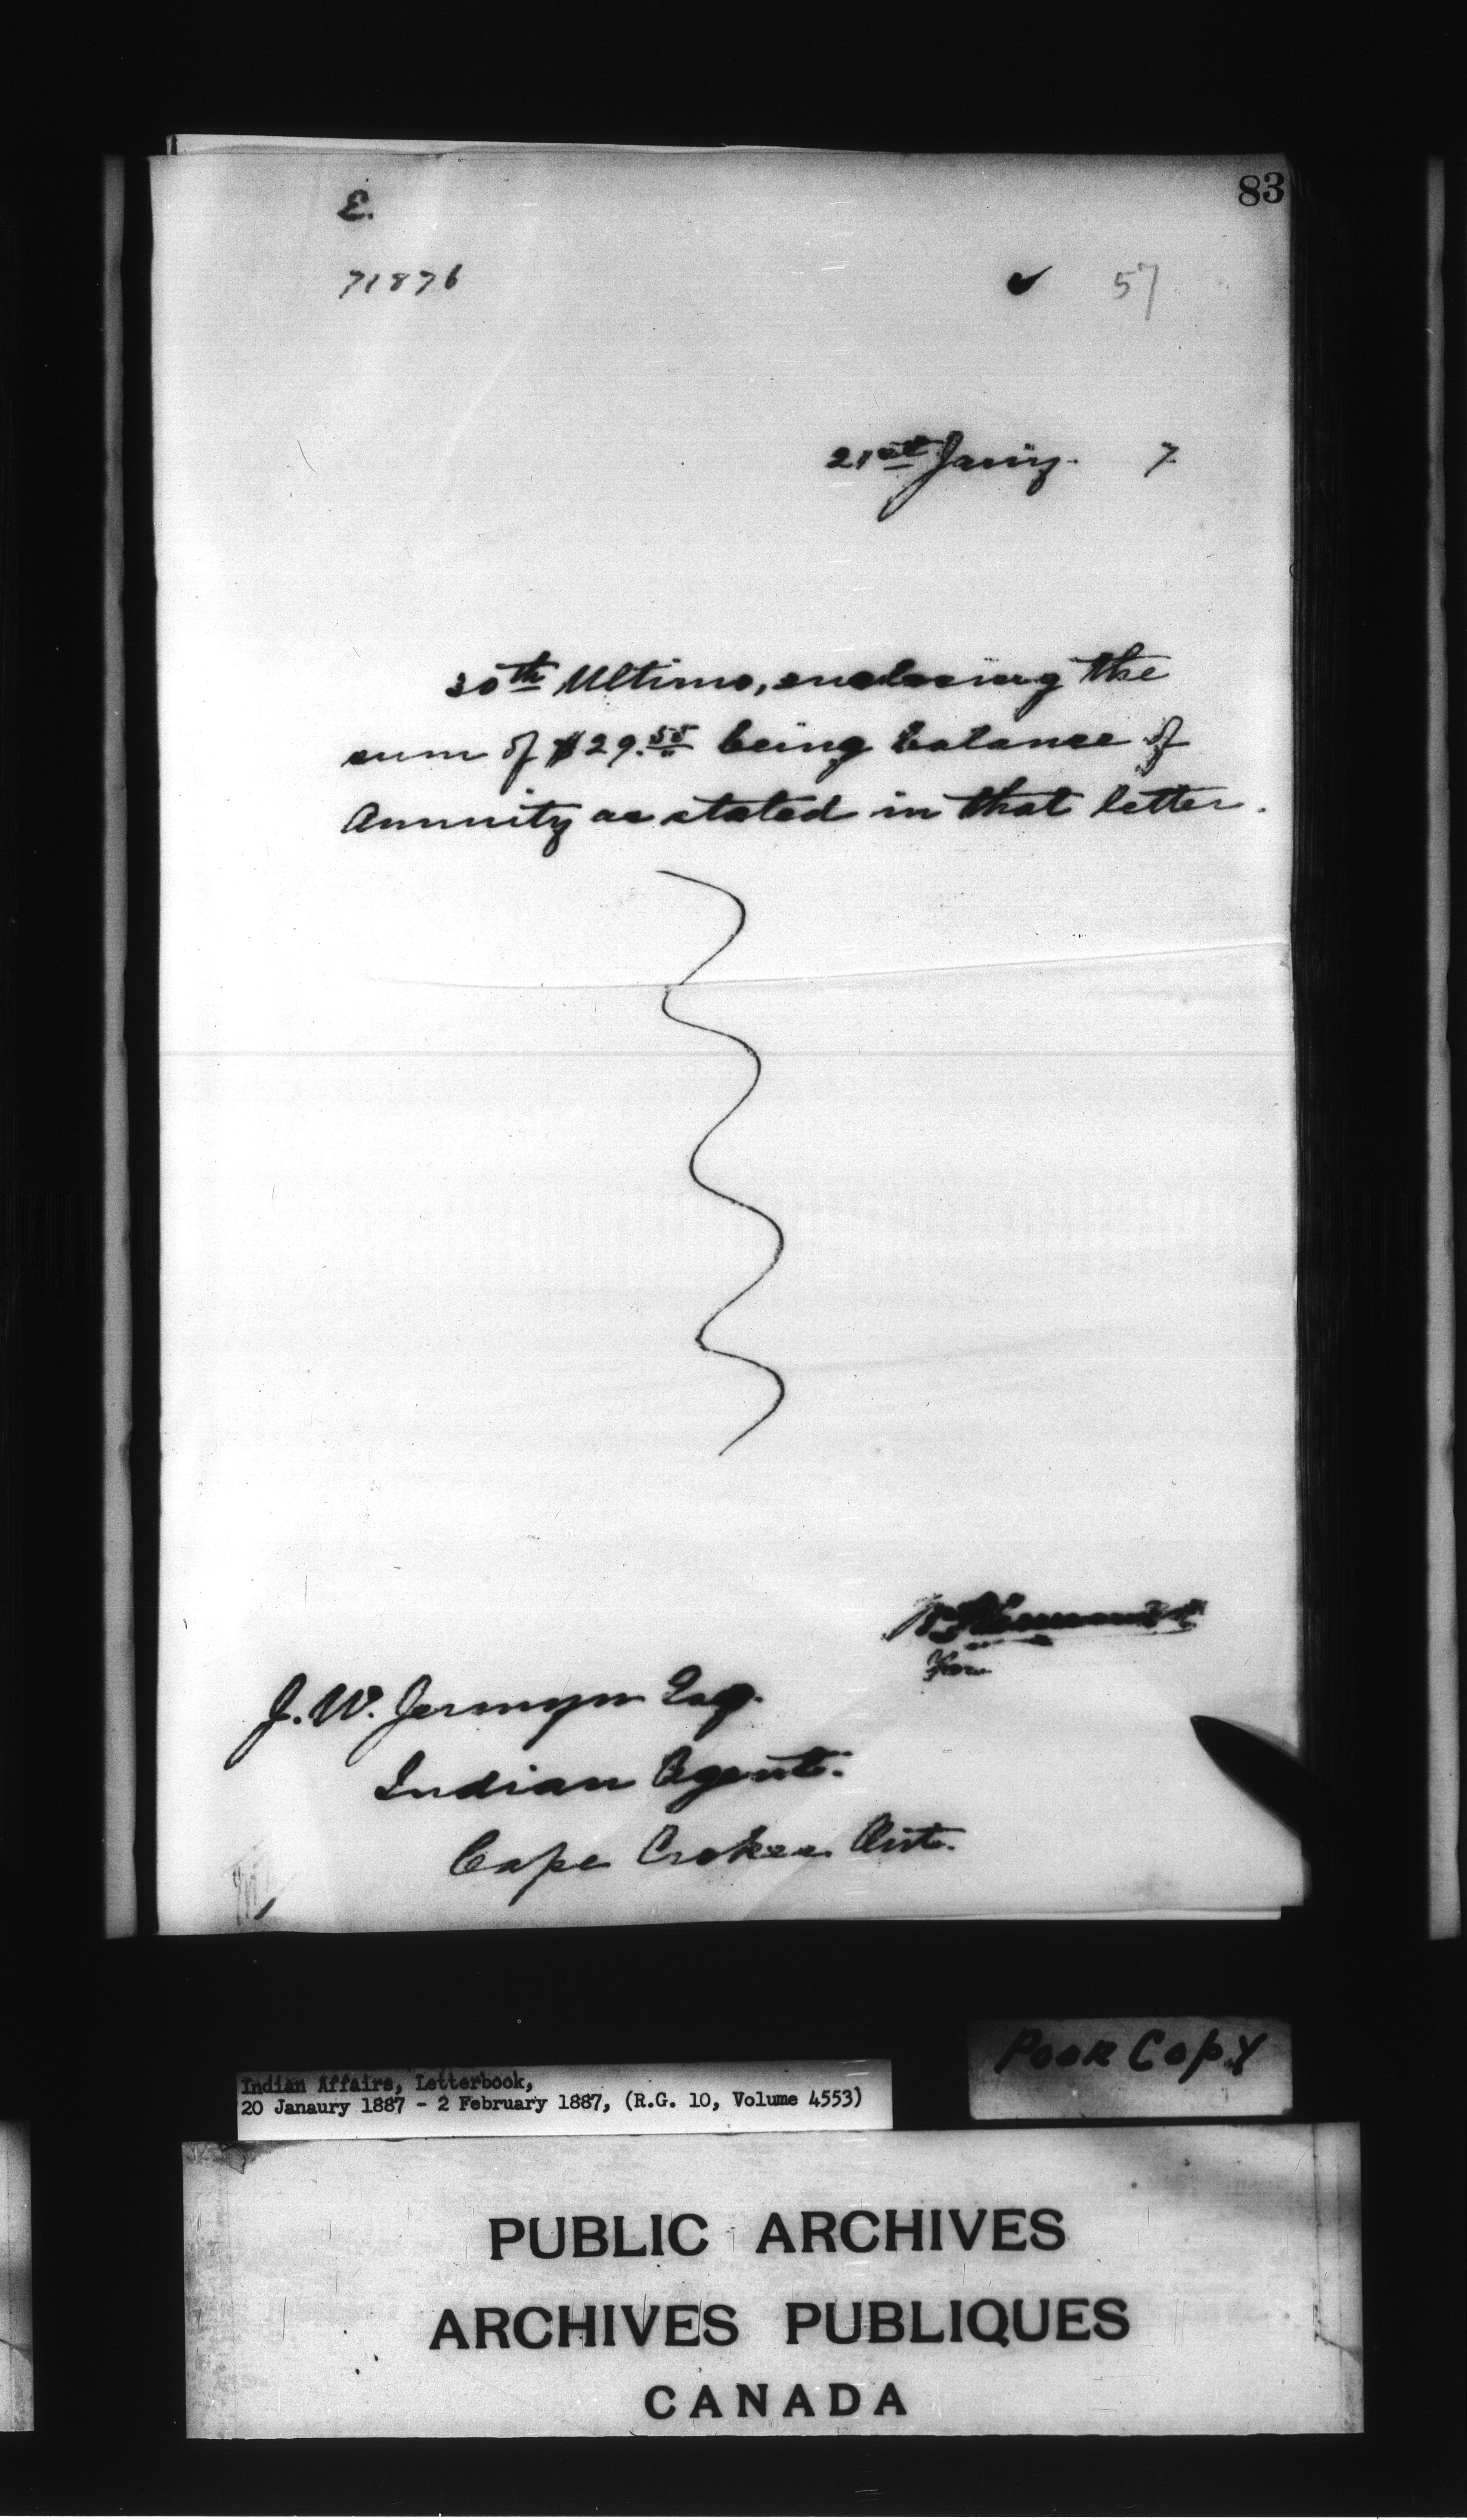 83
E.
71876
57
21st Jany. 7
30th Ultimo, enclosing the
sum of $29.55 being balance of
Annuity as stated in that letter.
For
J. W. Jermyn Esq.
Indian Agent.
Cape Croker Ont.
Poor Copy
Indian Affairs, Letterbook,
20 Janaury 1887 - 2 February 1887, (R.G. 10, Volume 4553)
PUBLIC ARCHIVES
ARCHIVES PUBLIQUES
CANADA